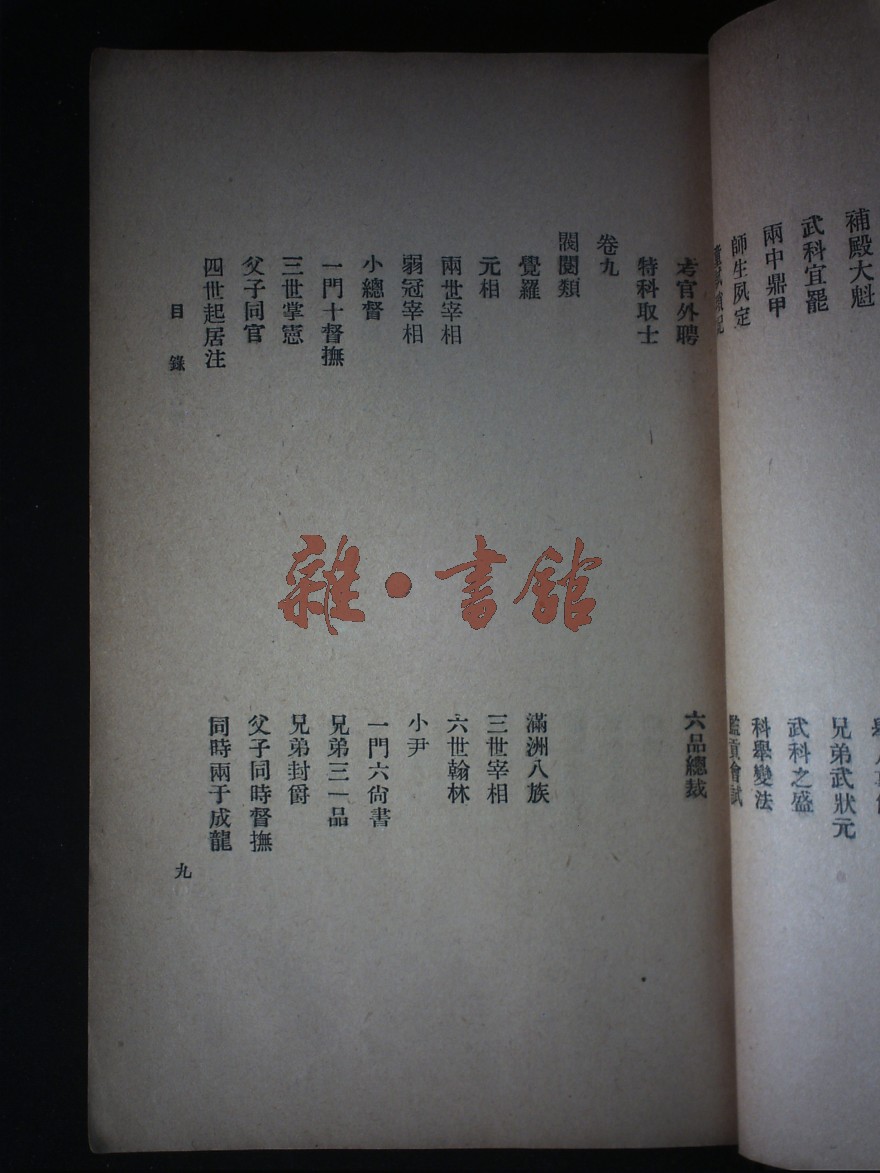 補殿大魁
武科宜罷
兩中鼎甲
師生夙定
兄弟武狀元
武科之盛
科舉變法
監貢會試
考官外聘
六品總裁
特科取士
卷九
閥閱類
覺羅
滿洲八族
元相
三世宰相
兩世宰相
六世翰林
弱冠宰相
小尹
小總督
一門六尙書
一門十督撫
兄弟三一品
三世掌憲
兄弟封爵
父子同官
父子同時督撫
四世起居注
同時兩于成龍
目錄
九
雜·書館